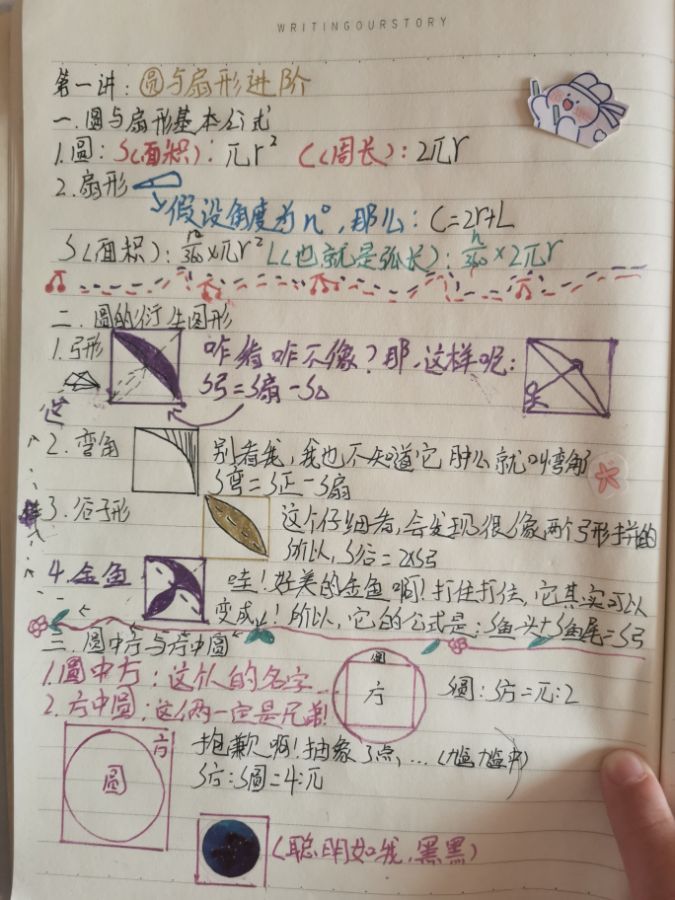 WRITINGOURSTORY
第一讲：圆与扇形进阶
一.圆与扇形基本公式
1.圆：S(面积)：πr² C(周长)：2πr
2.扇形
假设角度为n°，那么：C=2r+L
S(面积)：n/360×πr² L(也就是弧长)：n/360×2πr
二.圆的衍生图形
1.弓形 咋看咋不像？那，这样呢：
S弓=S扇-S△
2.弯角 别看我，我也不知道它那么就叫弯角
S弯=S正-S扇
3.谷子形 这个仔细看，会发现很像两个弓形拼的
所以，S谷=2×S弓
4.金鱼 哇！好美的金鱼啊！打住打住，它其实可以
变成！所以，它的公式是：S鱼头+S鱼尾=S弓
三.圆中方与方中圆
1.圆中方：这个人的名字…
圆
方
S圆：S方=π：2
2.方中圆：这俩一定是兄弟！
方
圆
抱歉啊！抽象了点，…(尴尬中)
S方：S圆=4：π
(聪明如我，黑黑)